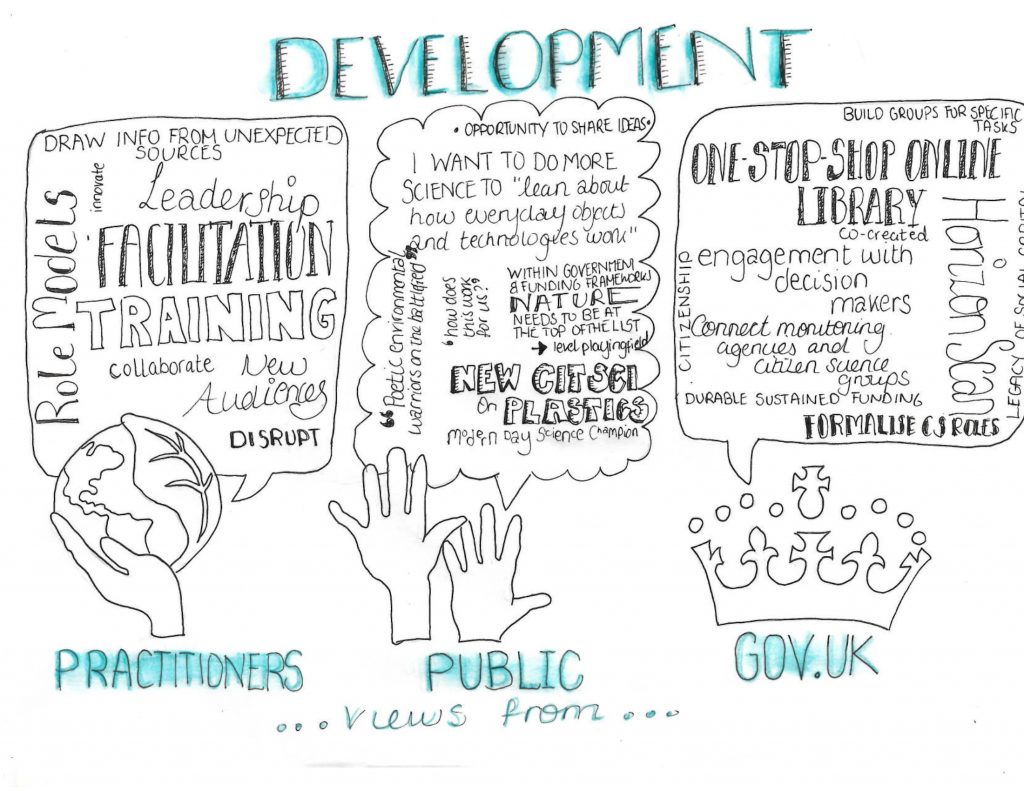 DEVELOPMENT
DRAW INFO FROM UNEXPECTED
SOURCES
Role Models
innovate
Leadership
FACILITATION
TRAINING
collaborate
New
Audiences
DISRUPT
• OPPORTUNITY TO SHARE IDEAS•
I WANT TO DO MORE
SCIENCE TO "lean about
how everyday objects
and technologies work"
"Poetic environmental
warriors on the battlefield"
'how does
this work
for us??
WITHIN GOVERNMENT
& FUNDING FRAMEWORKS
NATURE
NEEDS TO BE AT
THE TOP OF THE LIST
→ level playingfield
NEW CITSCI
On PLASTICS
Modern Day Science Champion
BUILD GROUPS FOR SPECIFIC
TASKS
ONE-STOP-SHOP ONLINE
LIBRARY
co-created
CITIZENSHIP
engagement with
decision
makers
Connect monitoring
agencies and
citizen science
groups
DURABLE SUSTAINED FUNDING
FORMALISE CS ROLES
Horizon Scan
LEGACY OF
PRACTITIONERS
PUBLIC
GOV.UK
...views from...